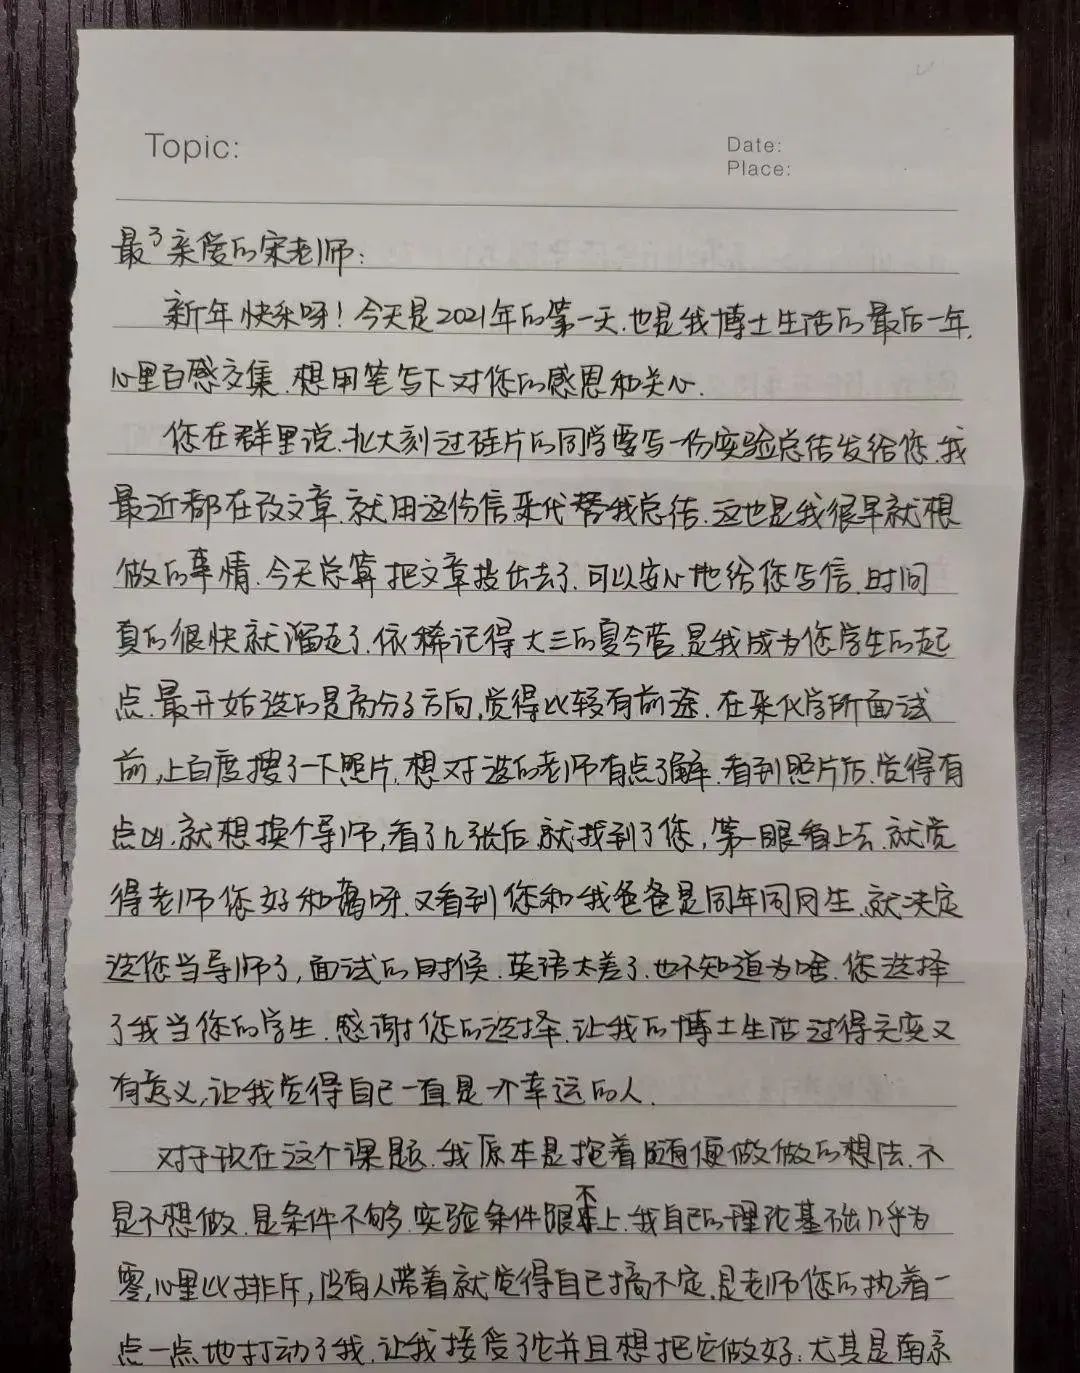 Topic:
Date:
Place:
最最亲爱的宋老师:
新年快乐呀!今天是2021年的第一天.也是我博士生活的最后一年.
心里百感交集.想用笔写下对您的感恩和关心.
您在群里说.北大刻过硅片的同学要写一份实验总结发给您.我
最近都在改文章.就用这份信来代替我总结.这也是我很早就想
做的事情.今天总算把文章投出去了.可以安心地给您写信.时间
真的很快就溜走了.依稀记得大三的夏令营.是我成为您学生的起
点.最开始选的是高分子方向,觉得比较有前途.在来化学所面试
前,上百度搜了一下照片.想对选的老师有点了解.看到照片后.觉得有
点凶.就想换个导师,看了几张后.就找到了您,第一眼看上去.就觉
得老师您好和蔼呀.又看到您和我爸爸是同年同月生.就决定
选您当导师了,面试的时候.英语太差了.也不知道为啥.您选择
了我当您的学生.感谢您的选择.让我的博士生活过得充实又
有意义,让我觉得自己一直是一个幸运的人.
对于现在这个课题.我原本是抱着随便做做的想法.不
是不想做.是条件不够.实验条件跟不上.我自己的理论基础几乎为
零,心里以排斥,没有人带着就觉得自己搞不定.是老师您的执着一
点一点地打动了我.让我接受了它并且想把它做好:尤其是南京